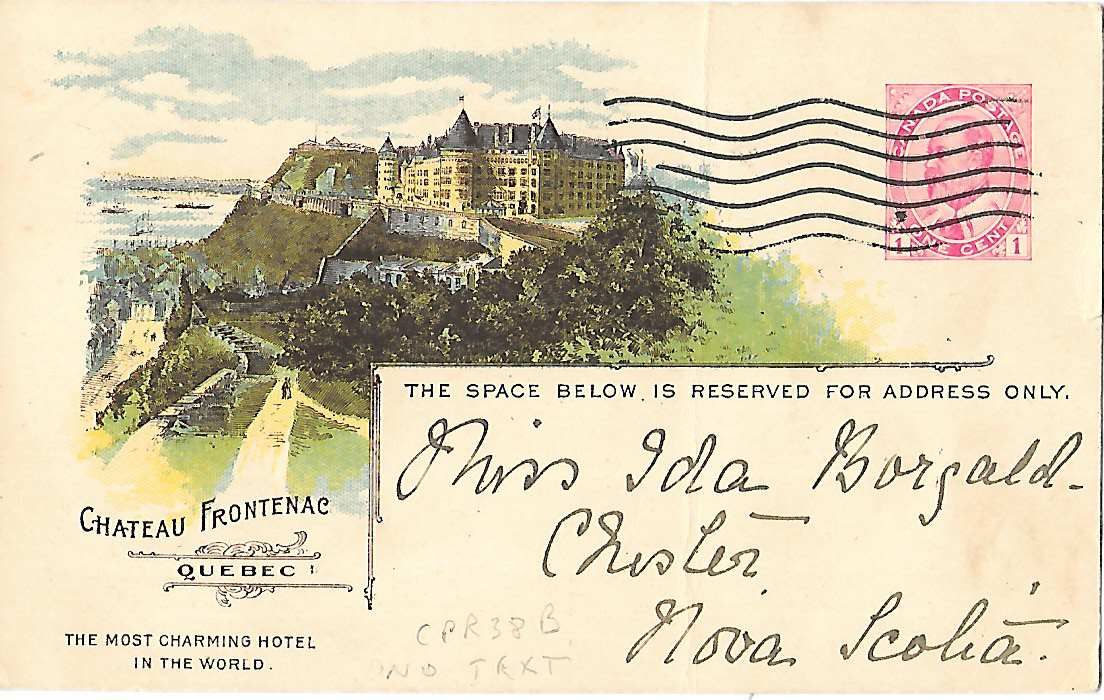 CANADA POSTAGE
1 ONE CENT 1
THE SPACE BELOW IS RESERVED FOR ADDRESS ONLY.
Miss Ida Borgald-
Chester
Nova Scotia.
CHATEAU FRONTENAC
QUEBEC
THE MOST CHARMING HOTEL
IN THE WORLD.
CPR38B
NO TEXT